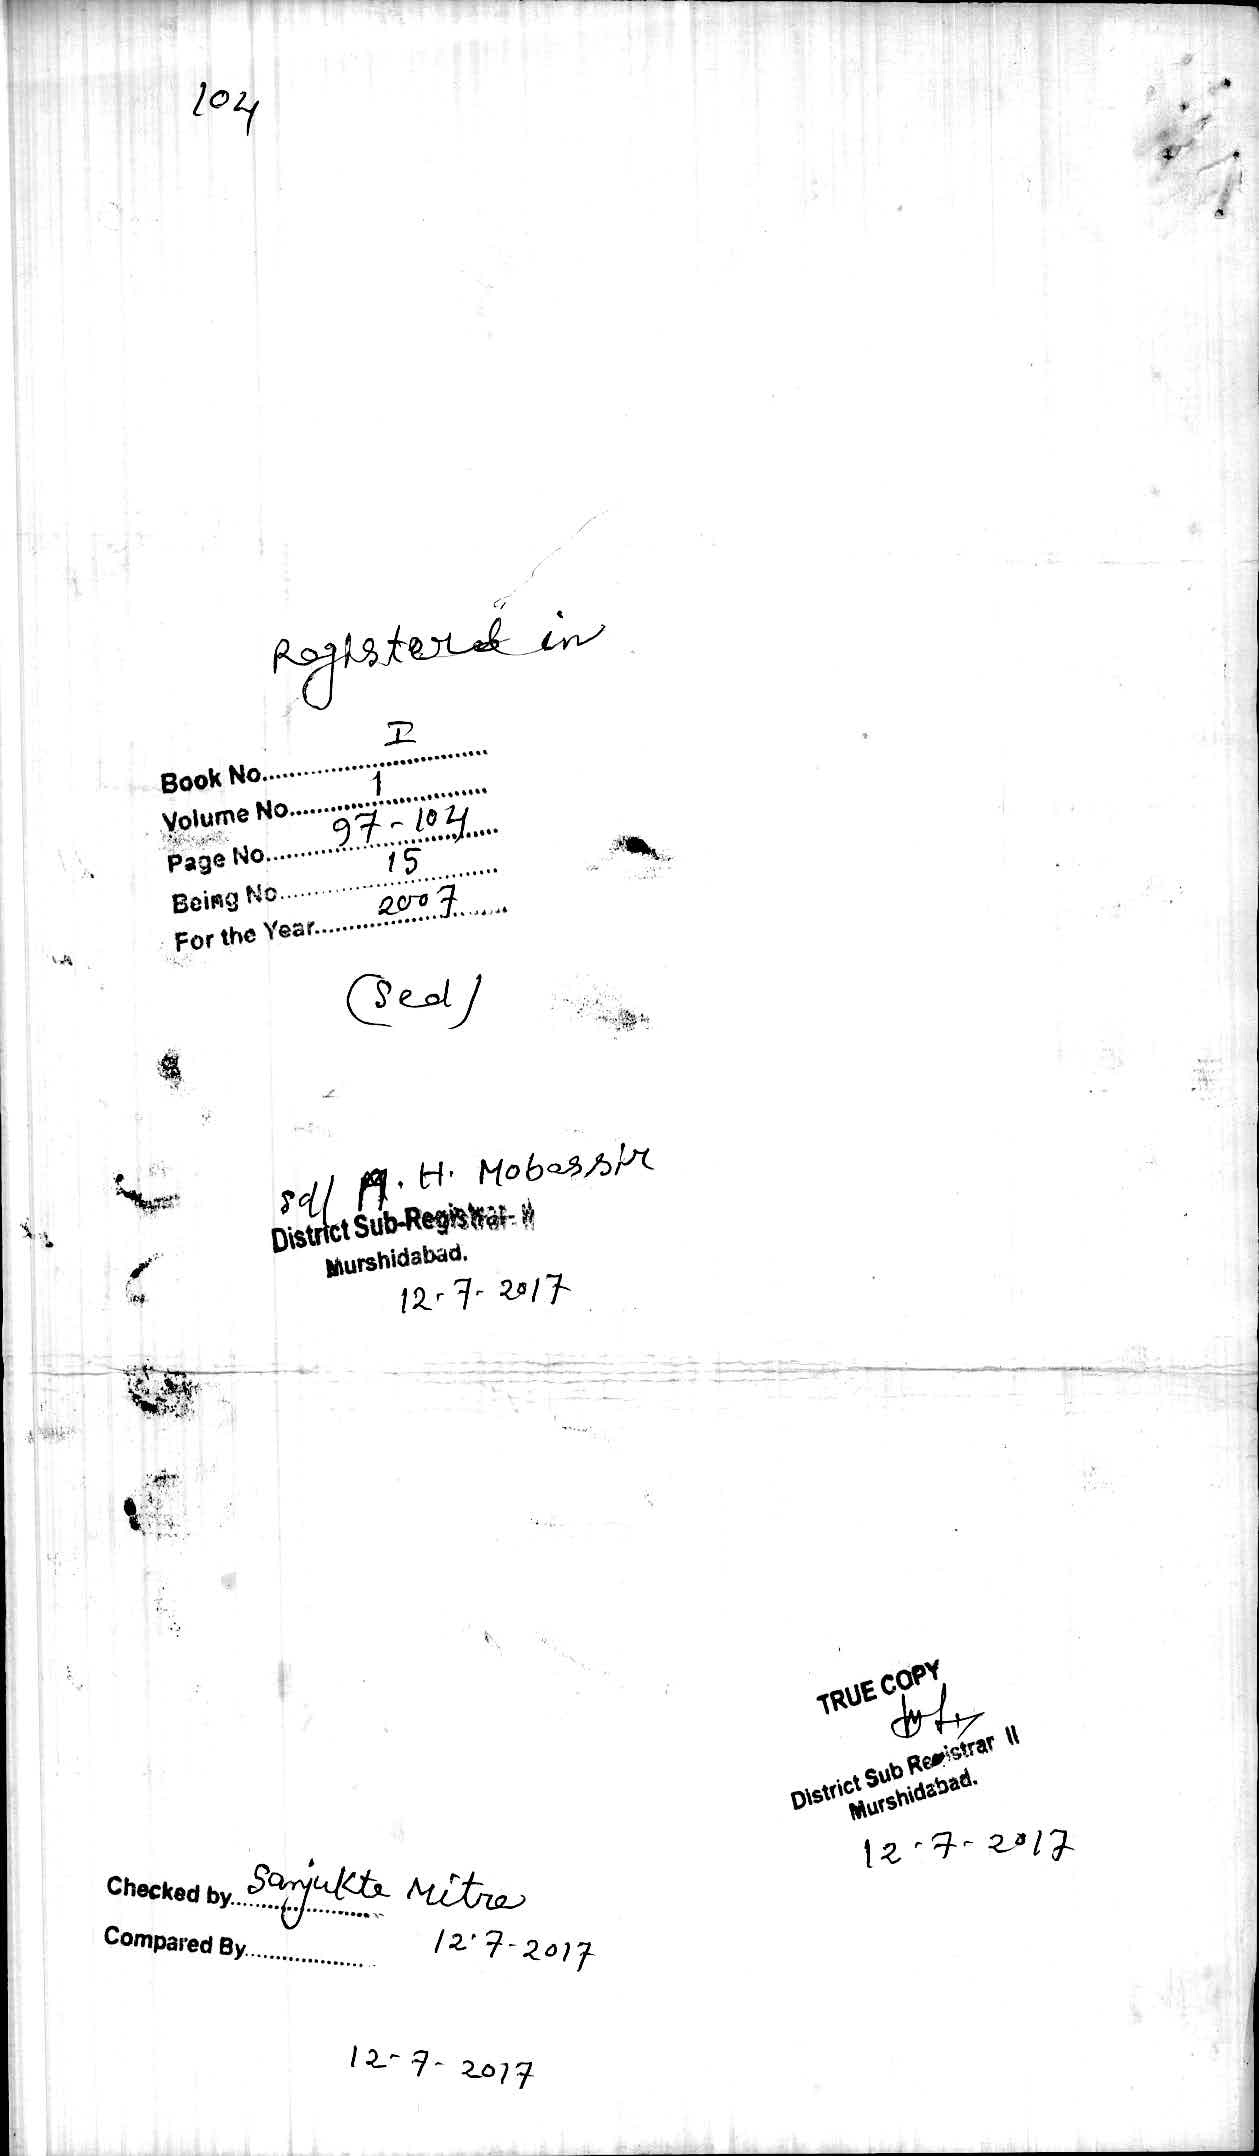 104
Registered in
Book No. I
Volume No. 1
Page No. 97-104
Being No. 15
For the Year. 2007
(Sed)
Sd/ A. H. Mobassir
District Sub-Registrar- II
Murshidabad.
12-7-2017
TRUE COPY
District Sub Registrar II
Murshidabad.
12-7-2017
Checked by Sanjukta Mitra
Compared By 12.7-2017
12-7-2017